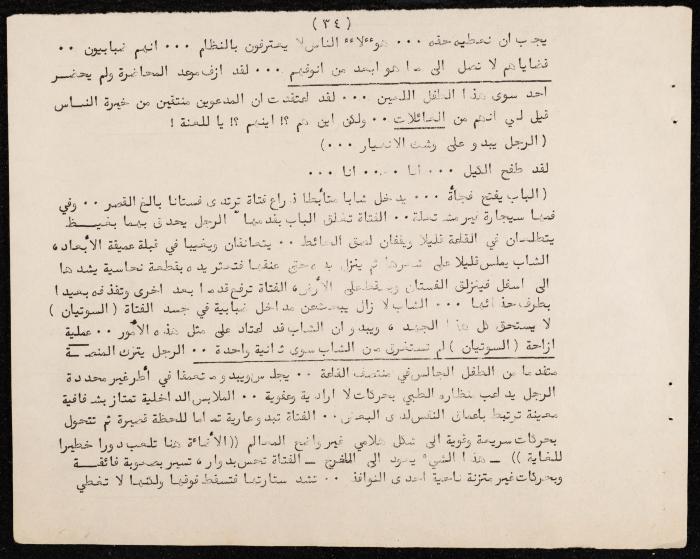 ( ٣٤ )
يجب ان نعطيه حقه ... هوءلاء الناس لا يعترفون بالنظام ... انهم ضبابيون ..
قضاياهم لا تصل الى ما هو ابعد من انوفهم ... لقد ازف موعد المحاضرة ولم يحضر
احد سوى هذا الطفل اللعين ... لقد اعتقدت ان المدعوين منتقين من خيرة الناس
قيل لي انهم من العائلات .. ولكن اين هم ؟! اينهم ؟! يا للعنة !
( الرجل يبدو على وشك الانهيار ... )
لقد طفح الكيل ... انا .... انا ...
( الباب يفتح فجأة ... يدخل شابا متأبطا ذراع فتاة ترتدى فستانا بالغ القصر .. وفي
فمها سيجارة غير مشتعلة .. الفتاة تغلق الباب بقدمها الرجل يحدق بهما بغيظ
يتطلعان في القاعة قليلا ويقفان لصق الحائط .. يتعانقان ويغيبا في قبلة عميقة الأبعاد ،
الشاب يملس قليلا على شعرها ثم ينزل يده حتى عنقها فتعثر يده بقطعة نحاسية يشدها
الى اسفل فينزلق الفستان ويسقط على الأرض ، الفتاة ترفع قدما بعد اخرى وتقذفه بعيدا
بطرف حذائها ... الشاب لا زال يبحث عن مداخل ضبابية في جسد الفتاة ( السوتيان )
لا يستحق كل هذا الجهد ، ويبدو ان الشاب قد اعتاد على مثل هذه الأمور .. عملية
ازاحة ( السوتيان ) لم تستغرق من الشاب سوى ثانية واحدة .. الرجل يترك المنصة
متقدما من الطفل الجالس في منتصف القاعة .. يجلس ويبدو متعمقا في أطر غير محددة
الرجل يداعب منظاره الطبي بحركات لا ارادية وعفوية .. الملابس الداخلية تمتاز بشفافية
معينة ترتبط باعماق النفس لدى البعض .. الفتاة تبدو عارية تماما للحظة قصيرة ثم تتحول
بحركات سريعة وقوية الى شكل هلامي غير واضح المعالم (( الأضاءة هنا تلعب دورا خطيرا
للغاية )) ــ هذا الشيء يعود الى المخرج ــ الفتاة تحس بدوار ، تسير بصعوبة فائقة
وبحركات غير متزنة ناحية احدى النوافذ .. تشد ستارتها فتسقط فوقها ولكنها لا تغطي